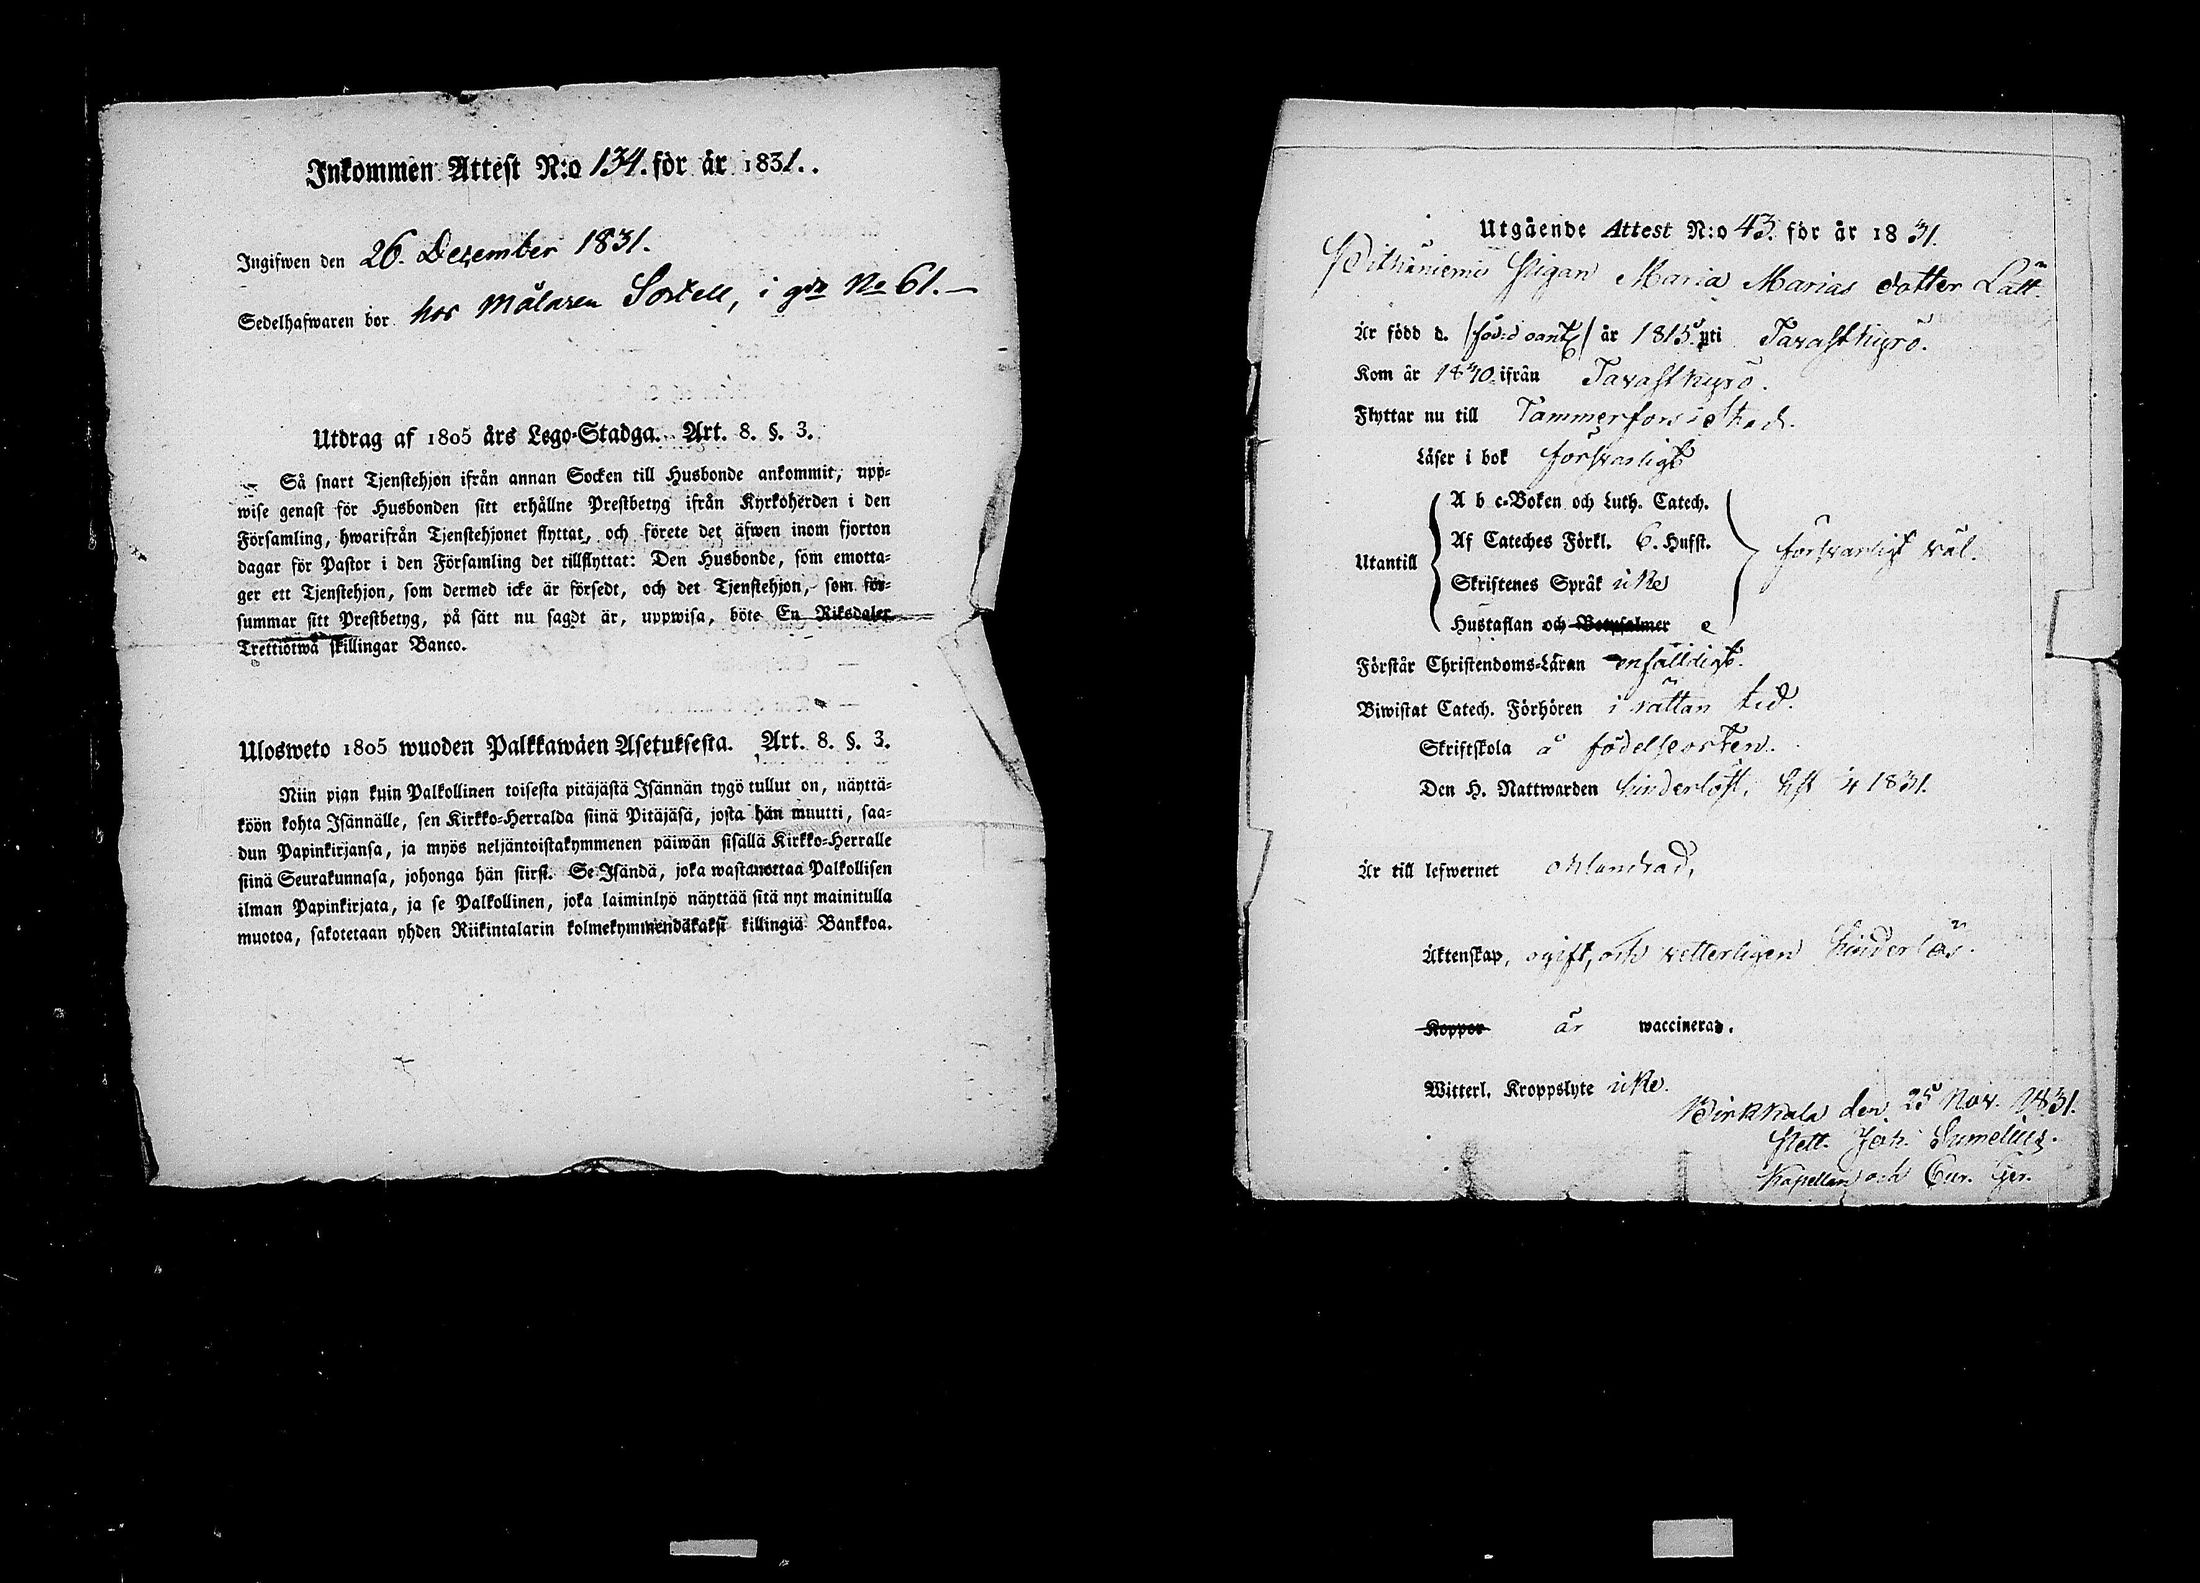 Inkommen Attest N:o 134. för år 1831.
Ingifwen den 26. December 1831.
Sedelhafwaren bor hos Målaren Sortell, i gdn No 61. —
Utdrag af 1805 års Lego-Stadga. Art. 8. §. 3.
Så snart Tjenstehjon ifrån annan Socken till Husbonde ankommit, upp-
wise genast för Husbonden sitt erhållne Prestbetyg ifrån Kyrkoherden i den
Församling, hwarifrån Tjenstehjonet flyttat, och förete det äfwen inom fjorton
dagar för Pastor i den Församling det tillflyttat: Den Husbonde, som emotta-
ger ett Tjenstehjon, som dermed icke är försedt, och det Tjenstehjon, som för-
summar sitt Prestbetyg, på sätt nu sagdt är, uppwisa, böte En Riksdaler
Trettiotwå skillingar Banco.
Ulosweto 1805 wuoden Palkkawäen Asetuksesta. Art. 8. §. 3.
Niin pian kuin Palkollinen toisesta pitäjästä Isännän tygö tullut on, näyttä-
köön kohta Isännälle, sen Kirkko-Herralda siinä Pitäjäsä, josta hän muutti, saa-
dun Papinkirjansa, ja myös neljäntoistakymmenen päiwän sisällä Kirkko-Herralle
siinä Seurakunnasa, johonga hän siirst. Se Isändä, joka wastanottaa Palkollisen
ilman Papinkirjata, ja se Palkollinen, joka laiminlyö näyttää sitä nyt mainitulla
muotoa, sakotetaan yhden Riikintalarin kolmekymmendäkaksi killingiä Bankkoa.
Utgående Attest N:o 43. för år 1831.
Pigan Maria Marias dotter Lätt.
Är född d. år 1815 uti Tavastkyro.
Kom år 1830 ifrån Tavastkyro.
Flyttar nu till Tammerfors Stad.
Läser i bok försvarligt
A b c-Boken och Luth. Catech.
Utantill Af Cateches Förkl. 6. Hufst. försvarligt väl.
Skriftenes Språk icke
Hustaflan och Botpsalmer
Förstår Christendoms-Läran enfälldigt.
Biwistat Catech. Förhören i rättan tid.
Skriftskola å födelseorten.
Den H. Nattwarden hinderlöst. 1831.
Är till lefwernet oklandrad,
Äktenskap, ogift, och vetterligen hinderlös.
Koppor är waccinerad.
Witterl. Kroppslyte icke.
Birkkala den 25 Nov. 1831.
Joh. Sumelius.
Kapellan och Cur. Ger.